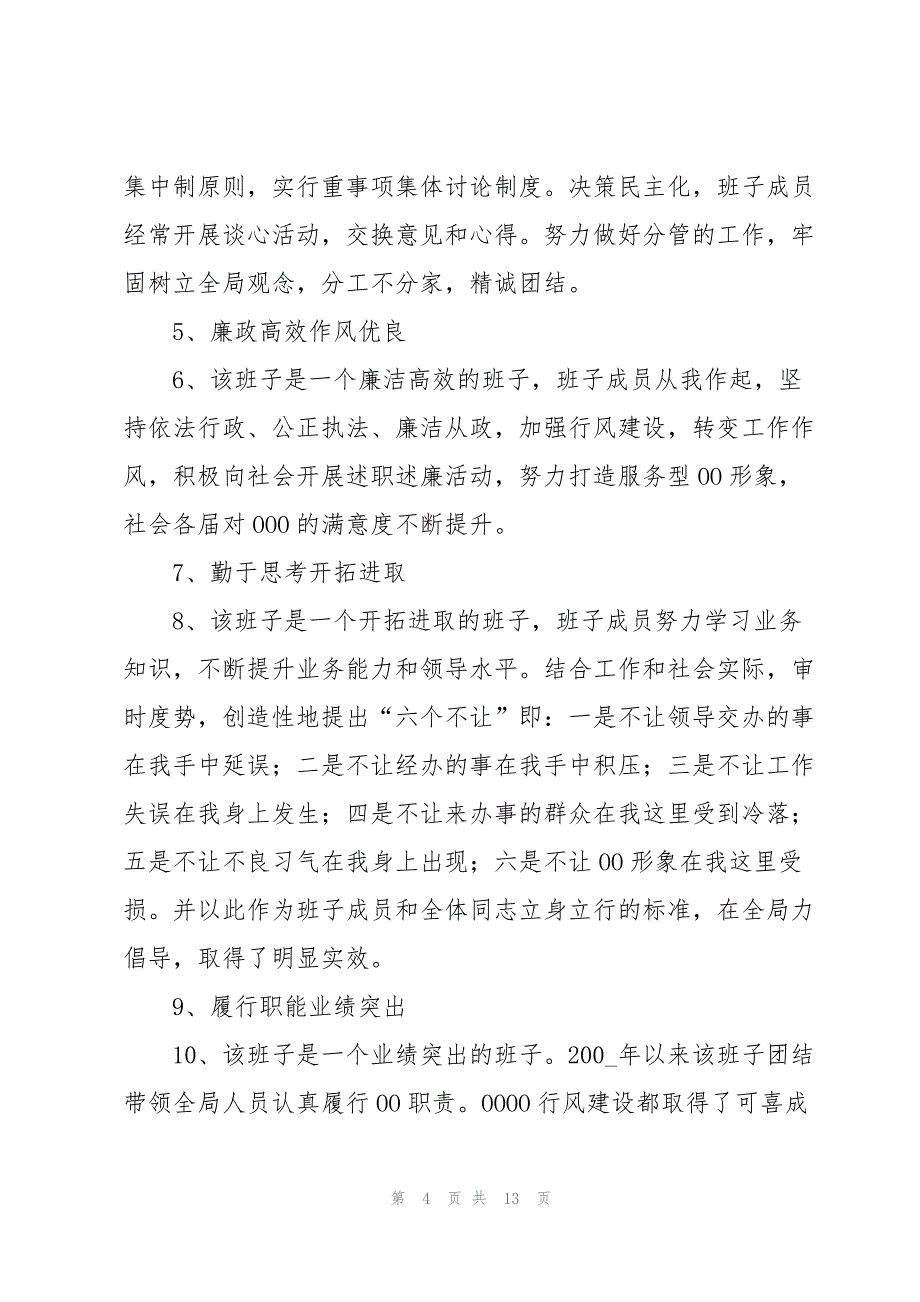 集中制原则，实行重事项集体讨论制度。决策民主化，班子成员
经常开展谈心活动，交换意见和心得。努力做好分管的工作，牢
固树立全局观念，分工不分家，精诚团结。
5、廉政高效作风优良
6、该班子是一个廉洁高效的班子，班子成员从我作起，坚
持依法行政、公正执法、廉洁从政，加强行风建设，转变工作作
风，积极向社会开展述职述廉活动，努力打造服务型 OO 形象，
社会各届对 OOO 的满意度不断提升。
7、勤于思考开拓进取
8、该班子是一个开拓进取的班子，班子成员努力学习业务
知识，不断提升业务能力和领导水平。结合工作和社会实际，审
时度势，创造性地提出“六个不让”即：一是不让领导交办的事
在我手中延误；二是不让经办的事在我手中积压；三是不让工作
失误在我身上发生；四是不让来办事的群众在我这里受到冷落；
五是不让不良习气在我身上出现；六是不让 OO 形象在我这里受
损。并以此作为班子成员和全体同志立身立行的标准，在全局力
倡导，取得了明显实效。
9、履行职能业绩突出
10、该班子是一个业绩突出的班子。200_年以来该班子团结
带领全局人员认真履行 OO 职责。OOOO 行风建设都取得了可喜成
第 4 页 共 13 页